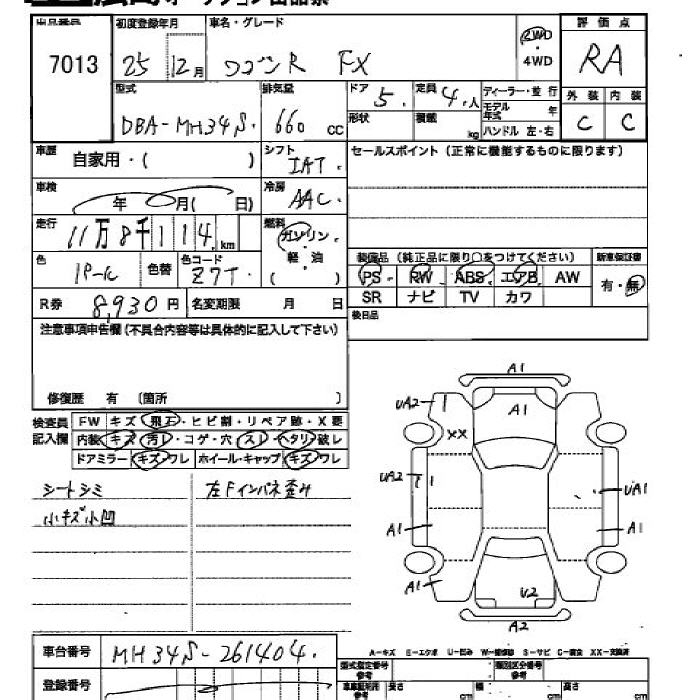 出品番号 初度登録年月 車名・グレード 評価点
7013 25 12月 ワゴンR FX 2WD・4WD RA
型式 排気量 ドア 5. 定員 4.人 ディーラー・並行 外装 内装
DBA-MH34S. 660 CC 形状 積載 kg モデル年式 年 ハンドル 左・右 C C
車歴 自家用・( ) シフト IAT. セールスポイント(正常に機能するものに限ります)
車検 年 月( 日) 冷房 AAC.
走行 11万8千114. km 燃料 ガソリン・軽・油 ( )
色 パール 色替 色コード Z7T. 装備品(純正品に限り○をつけてください) 新車保証書
PS RW ABS エアB AW 有・無
R券 8,930円 名変期限 月 日 SR ナビ TV カワ
注意事項申告欄(不具合内容等は具体的に記入して下さい) 後日品
修復歴 有 〔箇所 〕
検査員記入欄 FW キズ・飛石・ヒビ割・リペア跡・X要
内装 キズ・汚レ・コゲ・穴・スレ・ヘタリ・破レ
ドアミラー キズ・ワレ ホイール・キャップ キズ・ワレ
シートシミ 左Fインパネ歪み
小キズ小凹
A1
UA2 A1
XX
UA2 UA1
A1 A1
A1 U2
A2
車台番号 MH34S-261404.
A-キズ E-エクボ U-凹み W-補修跡 S-サビ C-腐食 XX-交換済
登録番号 型式指定番号 参考 類別区分番号 参考
車庫証明用 参考 長さ cm 幅 cm 高さ cm